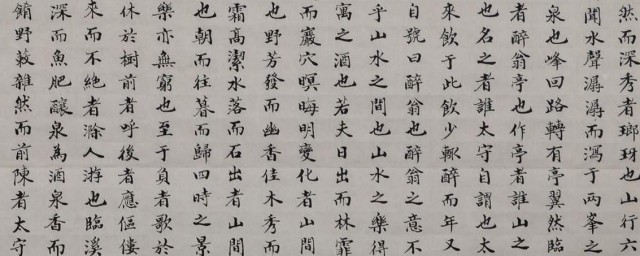 然而深秀者瑯琊也山行六
聞水聲潺潺而瀉于兩峯之
泉也峰回路轉有亭翼然臨
者醉翁亭也作亭者誰山之
也名之者誰太守自謂也太
來飲于此飲少輒醉而年又
自號曰醉翁也醉翁之意不
乎山水之間也山水之樂得
寓之酒也若夫日出而林霏
而巖穴暝晦明變化者山間
也野芳發而幽香佳木秀而
霜高潔水落而石出者山間
也朝而往暮而歸四時之景
樂亦無窮也至于負者歌於
休於樹前者呼後者應傴僂
來而不絕者滁人游也臨溪
深而魚肥釀泉為酒泉香而
餚野蔌雜然而前陳者太守